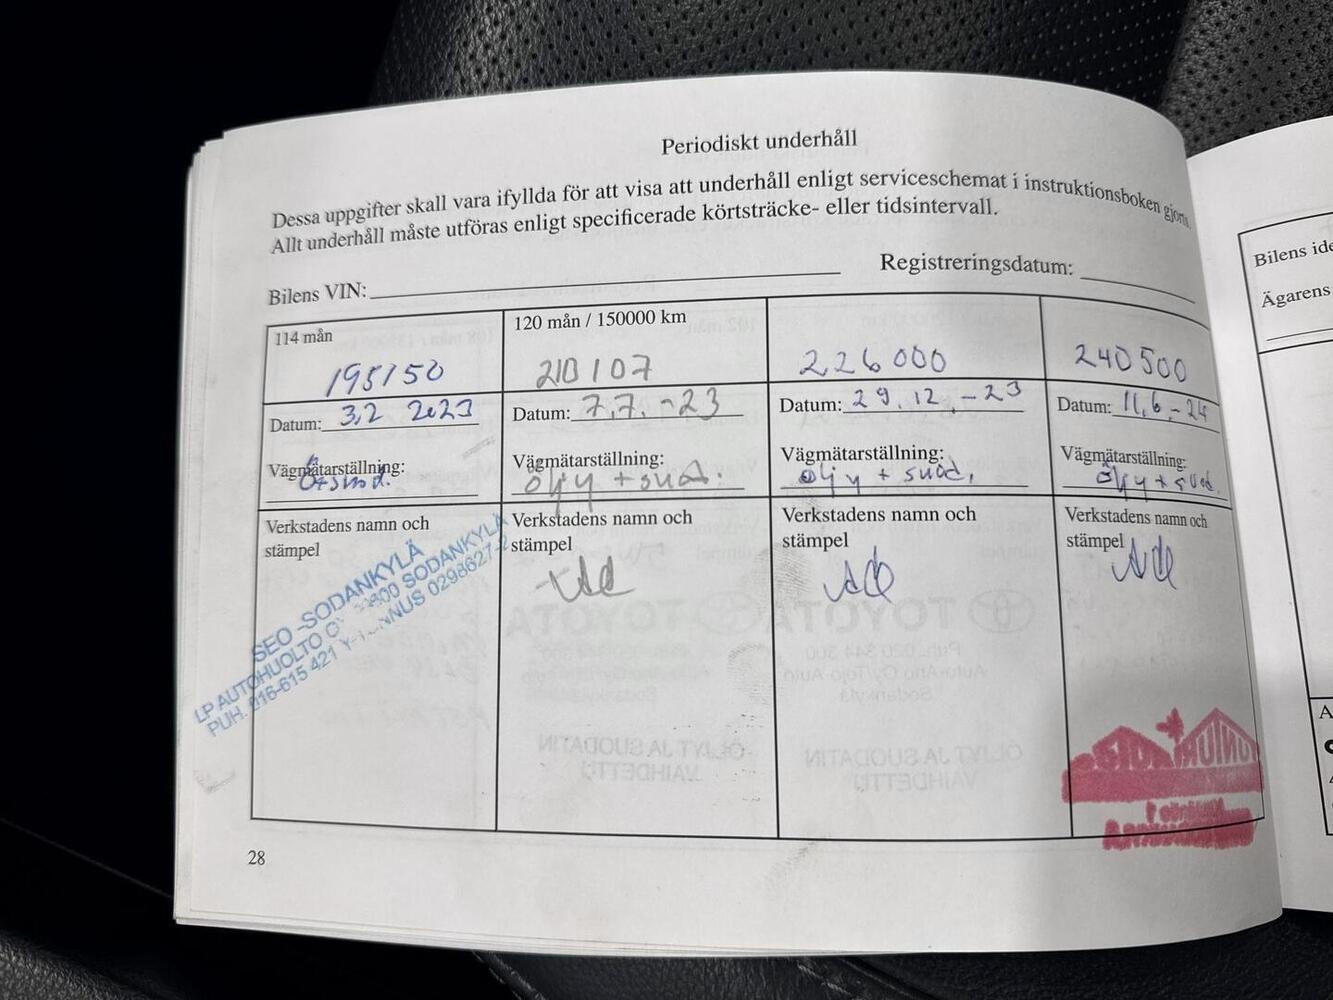 Periodiskt underhåll
Dessa uppgifter skall vara ifyllda för att visa att underhåll enligt serviceschemat i instruktionsboken gjorts
Allt underhåll måste utföras enligt specificerade körtsträcke- eller tidsintervall.
Bilens VIN:
Registreringsdatum:
114 mån
195150
Datum: 3,2 2023
Vägmätarställning:
Verkstadens namn och
stämpel
SEO -SODANKYLÄ
LP AUTOHUOLTO SODANKYLÄ
PUH. 016-615 421 0298627-2
120 mån / 150000 km
210107
Datum: 7,7.-23
Vägmätarställning:
öljy + suod.
Verkstadens namn och
stämpel
226000
Datum: 29.12.-23
Vägmätarställning:
öljy + suod.
Verkstadens namn och
stämpel
240500
Datum: 11,6.-24
Vägmätarställning:
öljy + suod.
Verkstadens namn och
stämpel
TOYOTA
TOYOTA
Puh. 020 344 300
Auto-Arto Oy/Tojo-Auto
Sodankylä
ÖLJYT JA SUODATIN
VAIHDETTU
ÖLJYT JA SUODATIN
VAIHDETTU
28
Bilens ide
Ägarens
A